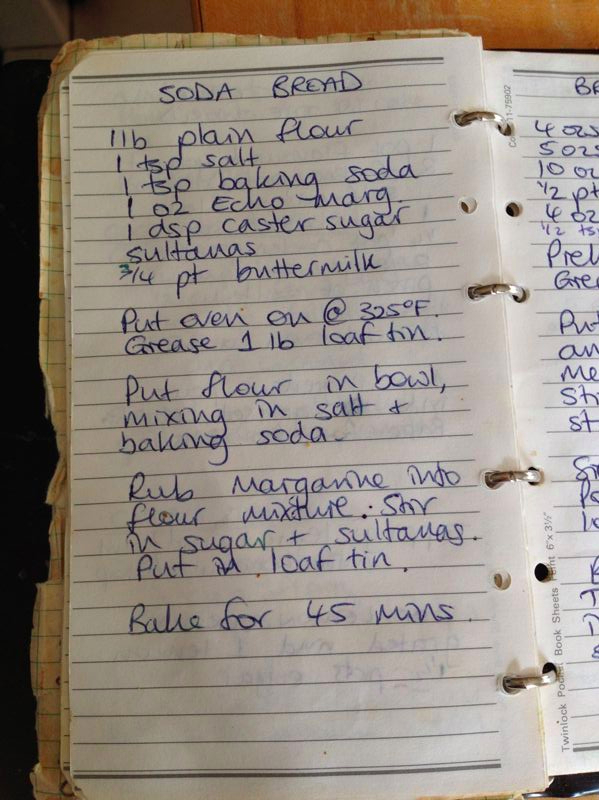 SODA BREAD
1lb plain flour
1 tsp salt
1 tsp baking soda
1 oz Echo Marg.
1 dsp caster sugar
sultanas
3/4 pt buttermilk
Put oven on @ 325°F.
Grease 1 lb loaf tin.
Put flour in bowl,
mixing in salt +
baking soda.
Rub Margarine into
flour mixture. Stir
in sugar + sultanas.
Put in loaf tin.
Bake for 45 mins.
4 ozs
5 ozs
10 oz
1/2 pt
4 oz
1/2 ts
Gre
Put
an
Me
Sti
st
Twinlock Pocket Book Sheets Feint 6"x 3½"